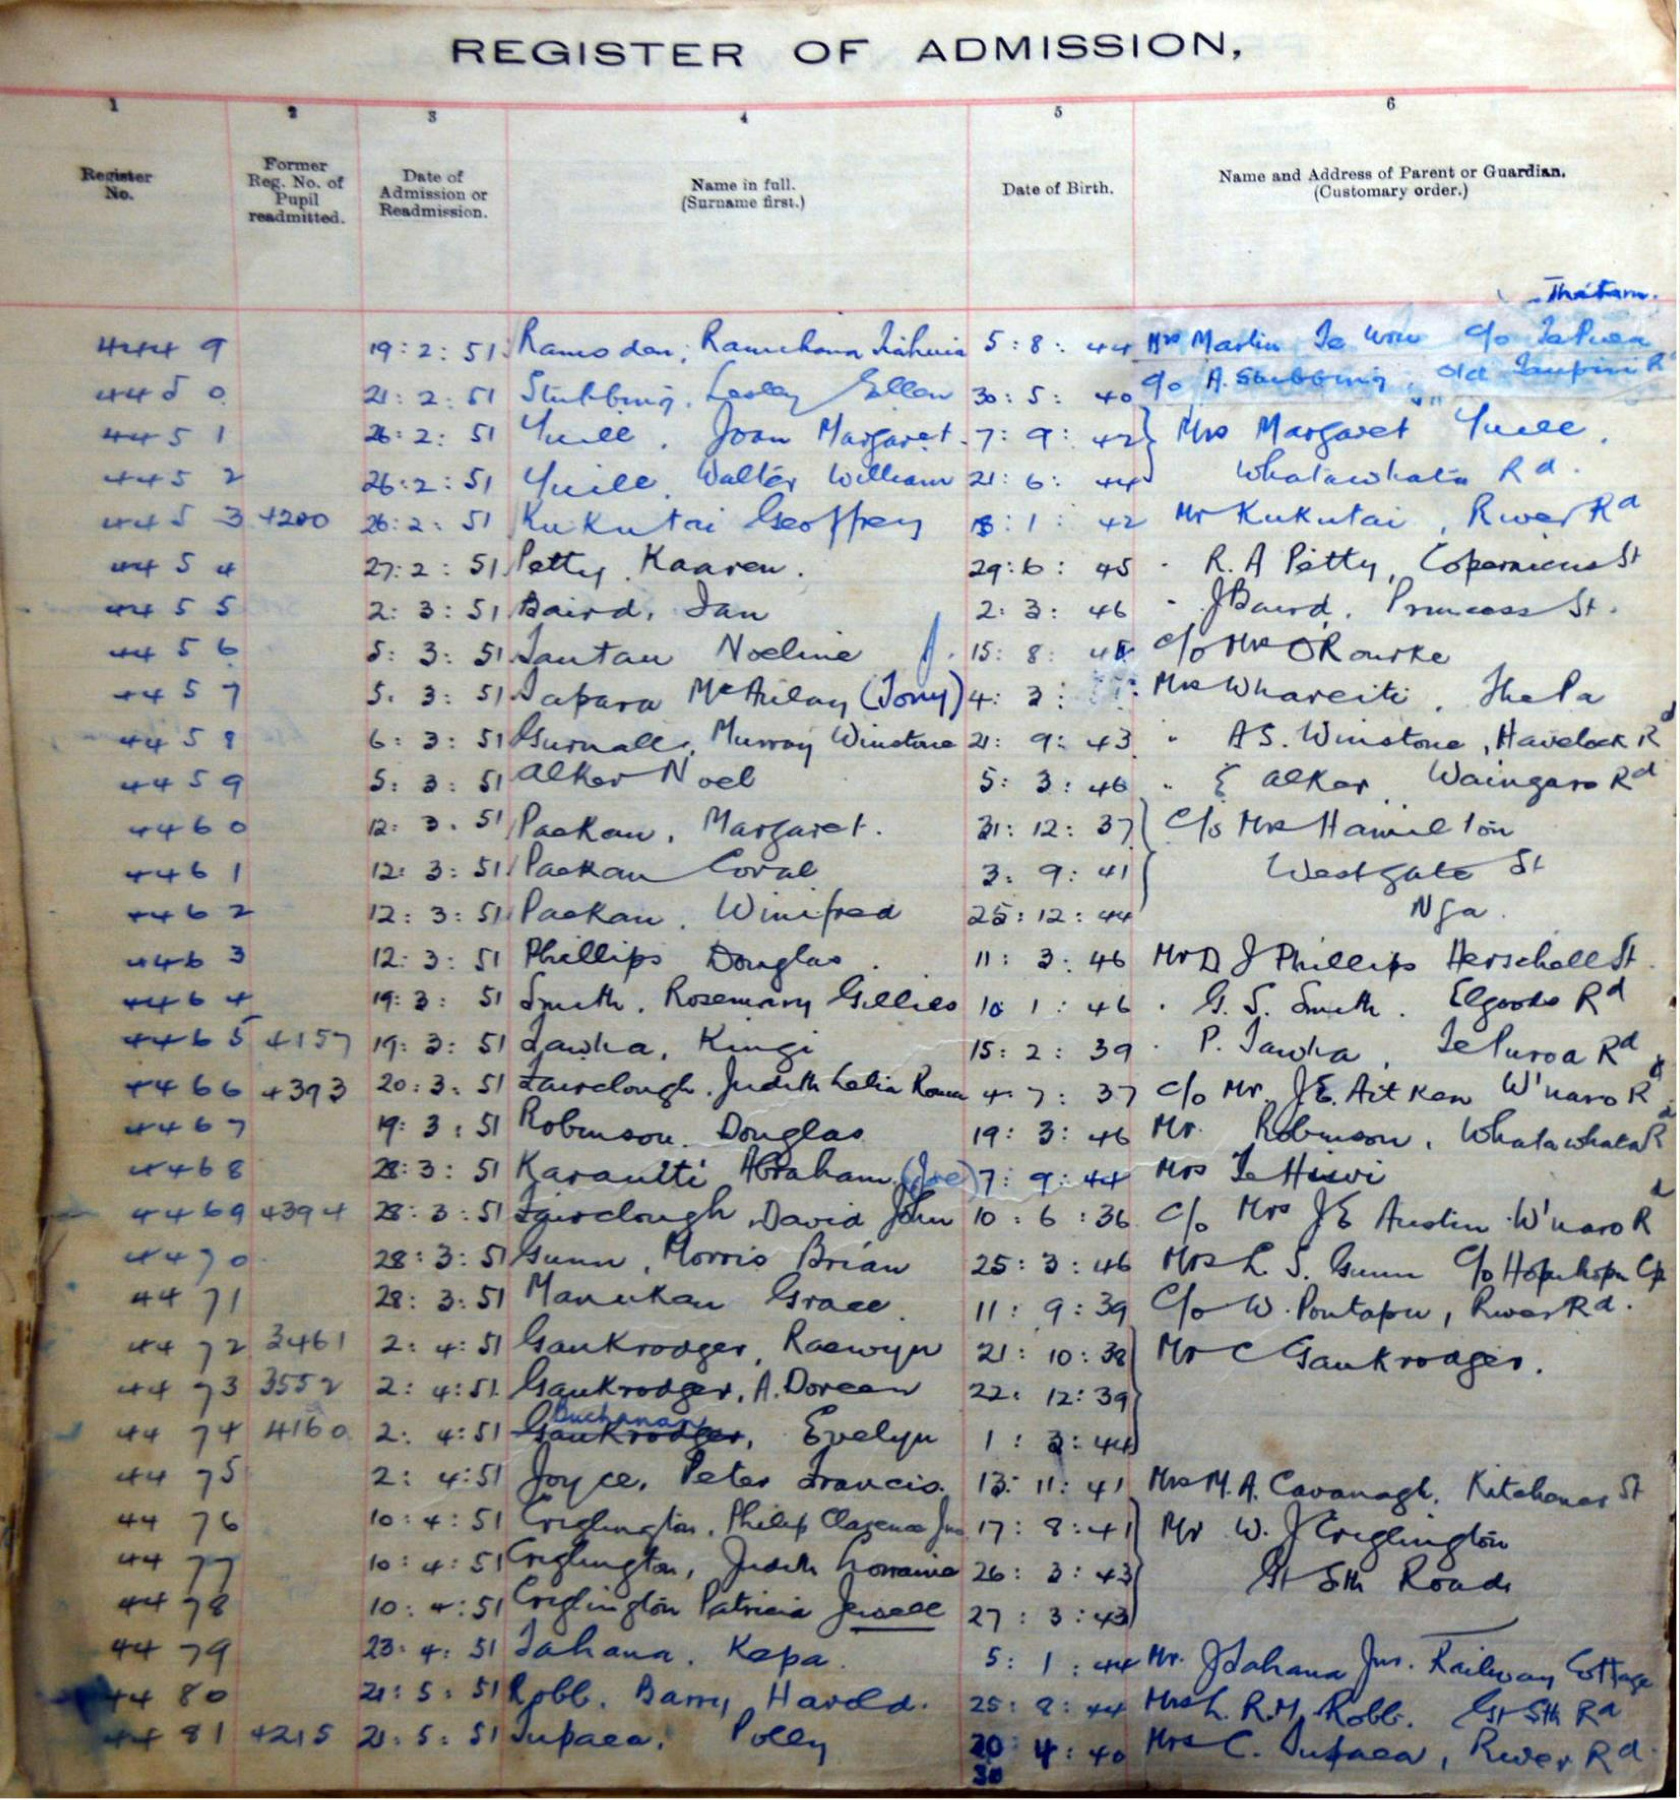 REGISTER OF ADMISSION,
1 2 3 4 5 6
Register No. Former Reg. No. of Pupil readmitted. Date of Admission or Readmission. Name in full. (Surname first.) Date of Birth. Name and Address of Parent or Guardian. (Customary order.)
4449 19:2:51 5:8:44 Mrs c/o TePuea
4450 21:2:51 Stubbing, Lesley Ellen 30:5:40 c/o A. Stubbing, Old Taupiri Rd
4451 26:2:51 Yuill, Joan Margaret 7:9:42 } Mrs Margaret Yuill,
4452 26:2:51 Yuill, Walter William 21:6:44 Whatawhata Rd.
4453 4200 26:2:51 Kukutai Geoffrey :1:42 Mr Kukutai, River Rd
4454 27:2:51 Petty, Kaaren. 29:6:45 " R. A Petty, Copernicus St
4455 2:3:51 Baird, Ian 2:3:46 " J Baird, Princess St.
4456 5:3:51 Tautau Noeline 15:8: c/o Mr O'Rourke
4457 5.3:51 Tapara McAulay (Tony) 4:3: Mrs Whareiti, The Pa
4458 6:3:51 Gurnall, Murray Winstone 21:9:43 " A S. Winstone, Havelock Rd
4459 5:3:51 Alker Noel 5:3:46 " E Alker Waingaro Rd
4460 12:3.51 Paekau, Margaret. 31:12:37 } c/o Mr Hamilton
4461 12:3:51 Paekau Coral 3:9:41 Westgate St
4462 12:3:51 Paekau, Winifred 25:12:44 Nga.
4463 12:3:51 Phillips Douglas. 11:3:46 Mr D J Phillips Herschell St.
4464 19:3:51 Smith, Rosemary Gillies 10 1:46 " G. S. Smith. Elgoods Rd
4465 4157 19:3:51 Tawha, Kingi 15:2:39 " P. Tawha, TePuroa Rd
4466 4393 20:3:51 Fairclough, Judith Lelia 4.7:37 c/o Mr. J E. Aitken W'naro Rd
4467 19:3:51 Robinson. Douglas 19:3:46 Mr. Robinson, Whatawhata Rd
4468 28:3:51 Karauti Abraham (Joe) 7:9:44 Mrs Te Hiwi
4469 4394 28:3:51 Fairclough, David John 10:6:36 c/o Mrs J E Austin W'naro Rd
4470 28:3:51 Gunn, Morris Brian 25:3:46 Mrs L. S. Gunn c/o Hopuhopu Cp
4471 28:3:51 Manukau Grace. 11:9:39 c/o W. Poutapu, River Rd.
4472 3461 2:4:51 Gaukrodger, Raewyn 21:10:38 } Mr C Gaukrodger.
4473 3552 2:4:51 Gaukrodger, A. Doreen 22:12:39
Buchanan
4474 4160 2:4:51 Gaukrodger, Evelyn 1:3:44
4475 2:4:51 Joyce, Peter Francis. 13:11:41 Mrs M. A. Cavanagh, Kitchener St
4476 10:4:51 Criglington, Philip Clarence 17:8:41 } Mr W. J Criglington
4477 10:4:51 Criglington, Judith Lorraine 26:3:43 Gt Sth Road
4478 10:4:51 Criglington Patricia Jewell 27:3:43
4479 23.4.51 Tahana. Kepa. 5:1:44 Mr. J Tahana Jnr. Railway Cottage
4480 21:5:51 Robb. Barry Harold. 25:8:44 Mrs L. R. M. Robb. Gt Sth Rd
4481 4215 21:5:51 Tupaea, Polly 20 4:40 Mrs C. Tupaea, River Rd.
30